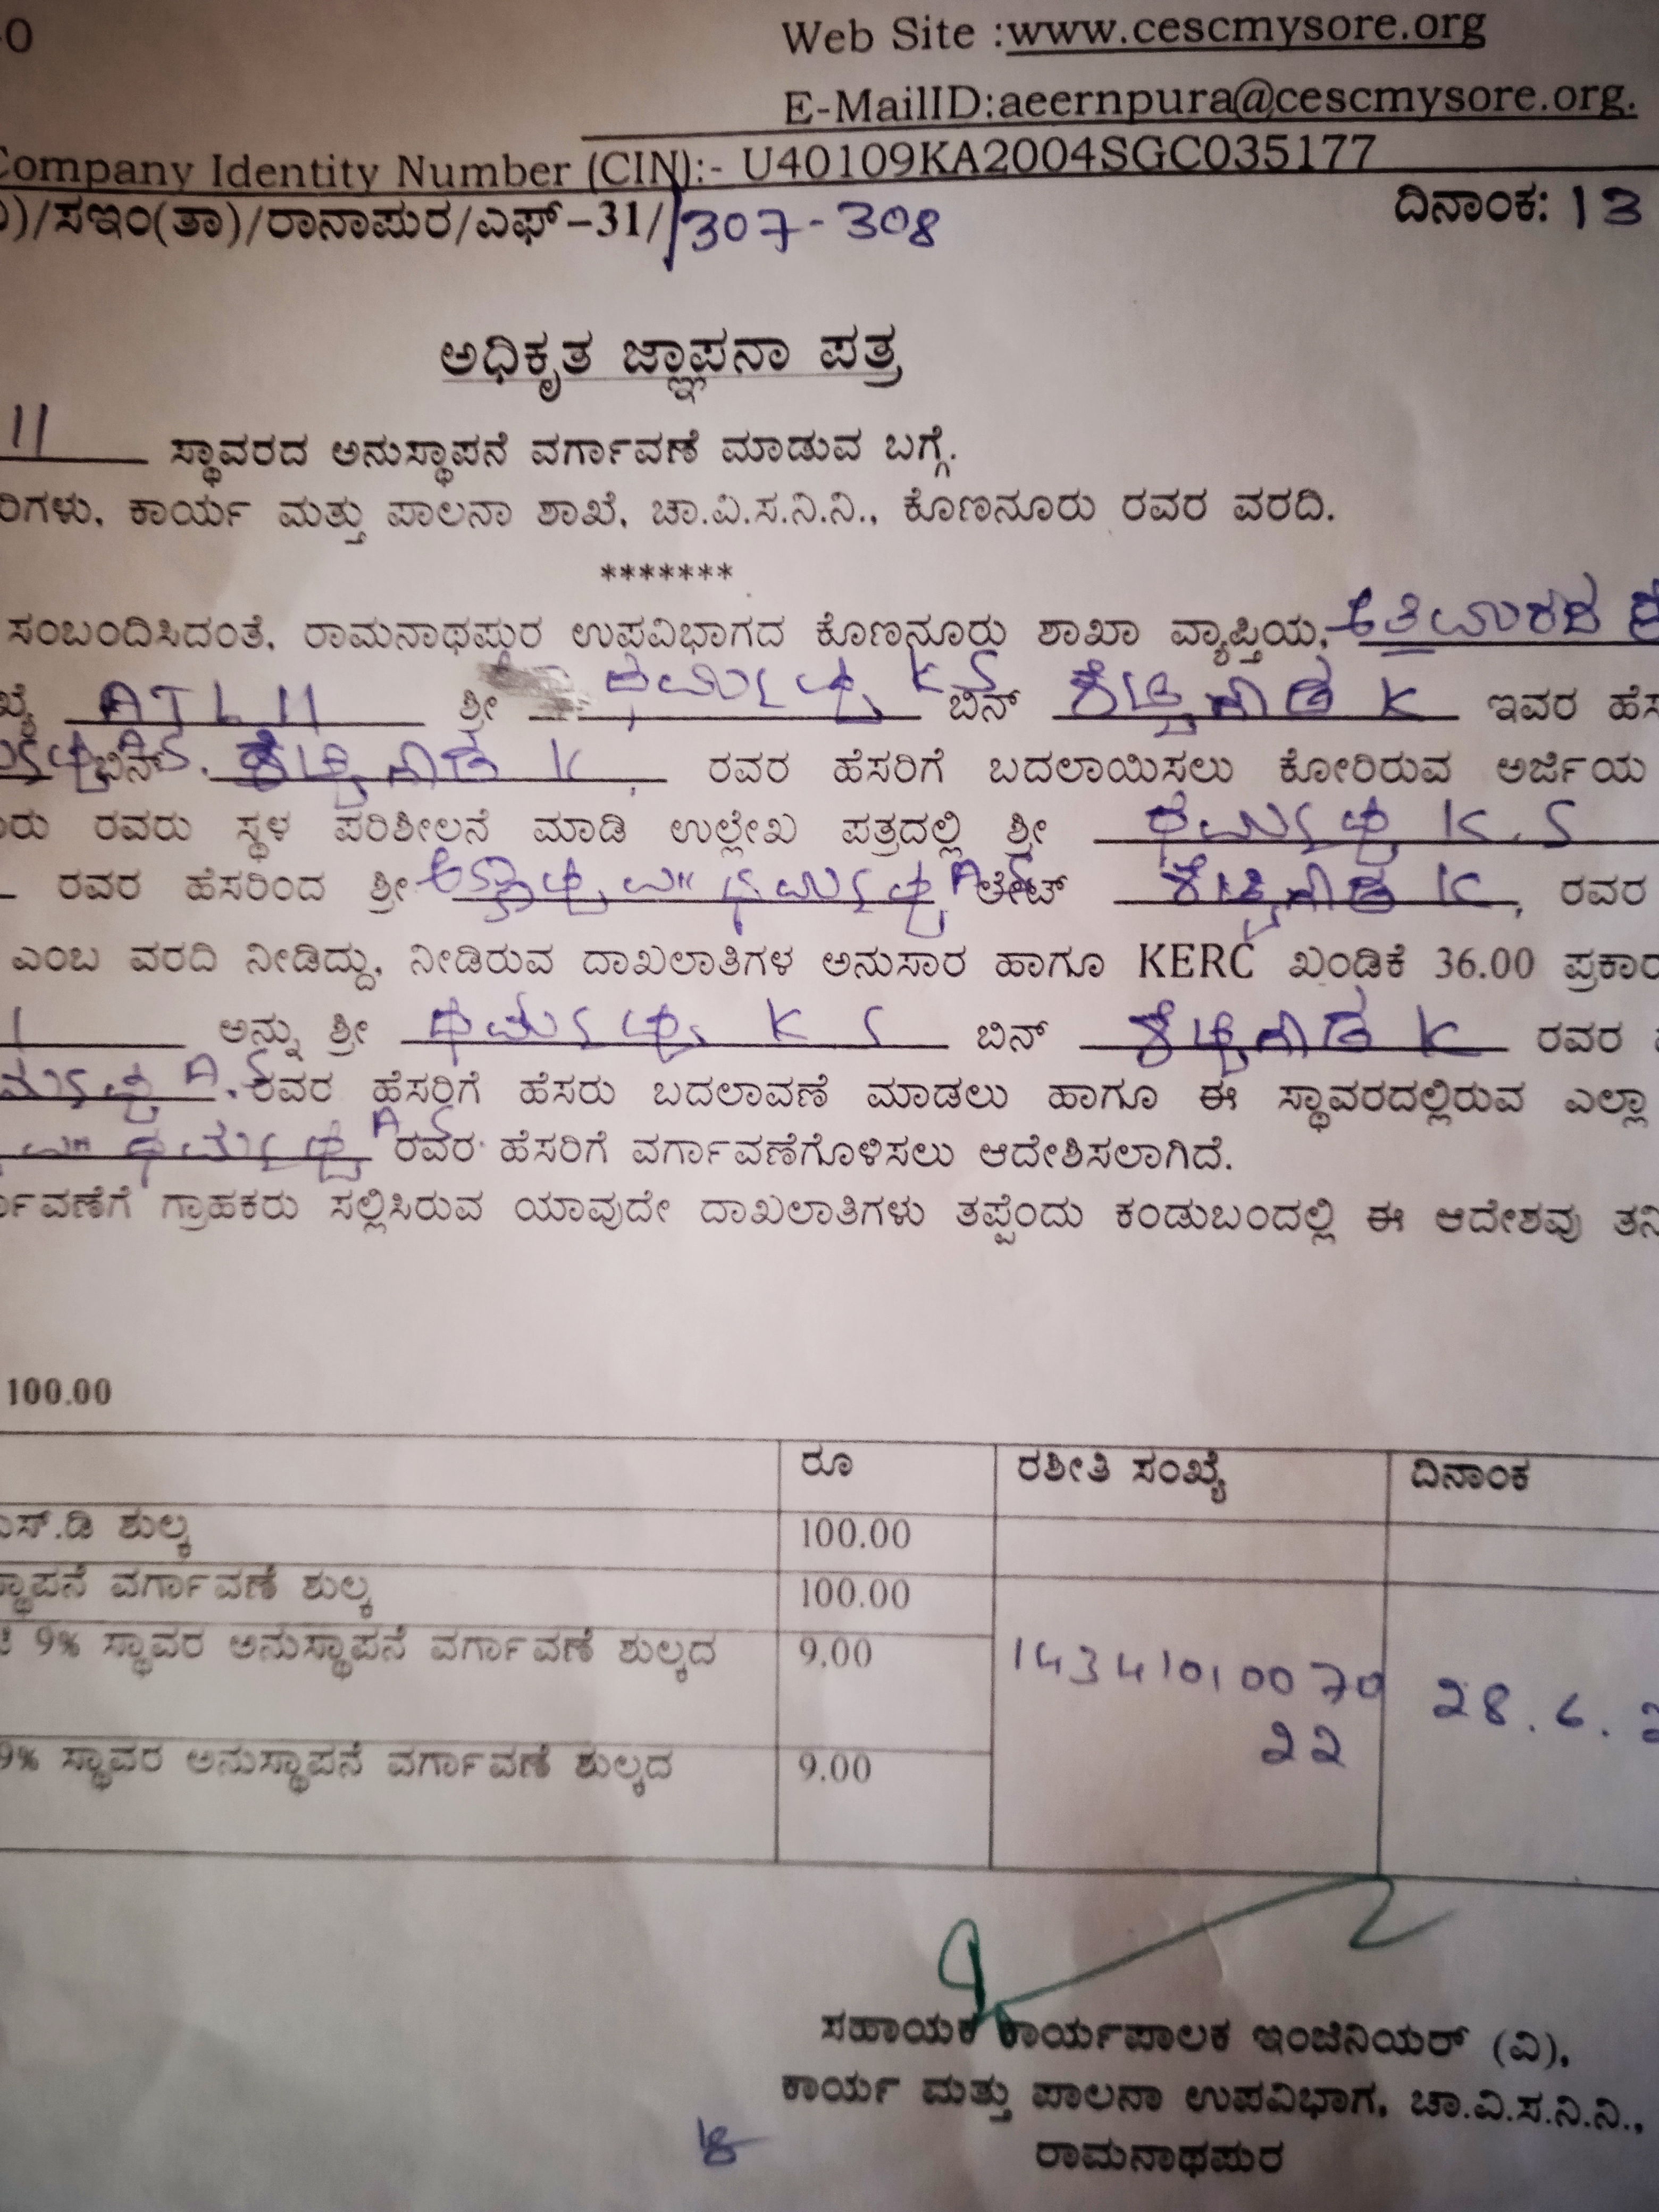 Web Site :www.cescmysore.org
E-MailID:aeernpura@cescmysore.org.
Company Identity Number (CIN):- U40109KA2004SGC035177
)/ಸಇಂ(ತಾ)/ರಾನಾಪುರ/ಎಫ್-31/ 307-308 ದಿನಾಂಕ: 13
ಅಧಿಕೃತ ಜ್ಞಾಪನಾ ಪತ್ರ
11 ಸ್ಥಾವರದ ಅನುಸ್ಥಾಪನೆ ವರ್ಗಾವಣೆ ಮಾಡುವ ಬಗ್ಗೆ.
ರಿಗಳು, ಕಾರ್ಯ ಮತ್ತು ಪಾಲನಾ ಶಾಖೆ, ಚಾ.ವಿ.ಸ.ನಿ.ನಿ., ಕೊಣನೂರು ರವರ ವರದಿ.
*******
ಸಂಬಂದಿಸಿದಂತೆ, ರಾಮನಾಥಪುರ ಉಪವಿಭಾಗದ ಕೊಣನೂರು ಶಾಖಾ ವ್ಯಾಪ್ತಿಯ,
ಖ್ಯೆ ATL 11 ಶ್ರೀ ಧರ್ಮಪ್ಪ K S ಬಿನ್ K ಇವರ ಹೆಸ
ಬಿನ್ K , ರವರ ಹೆಸರಿಗೆ ಬದಲಾಯಿಸಲು ಕೋರಿರುವ ಅರ್ಜಿಯ
ರು ರವರು ಸ್ಥಳ ಪರಿಶೀಲನೆ ಮಾಡಿ ಉಲ್ಲೇಖ ಪತ್ರದಲ್ಲಿ ಶ್ರೀ ಧರ್ಮಪ್ಪ K.S
ರವರ ಹೆಸರಿಂದ ಶ್ರೀ ಧರ್ಮಪ್ಪ A.S ಲೇಟ್ K , ರವರ
ಎಂಬ ವರದಿ ನೀಡಿದ್ದು, ನೀಡಿರುವ ದಾಖಲಾತಿಗಳ ಅನುಸಾರ ಹಾಗೂ KERC ಖಂಡಿಕೆ 36.00 ಪ್ರಕಾರ
ಅನ್ನು ಶ್ರೀ ಧರ್ಮಪ್ಪ K S ಬಿನ್ K ರವರ
A.S ರವರ ಹೆಸರಿಗೆ ಹೆಸರು ಬದಲಾವಣೆ ಮಾಡಲು ಹಾಗೂ ಈ ಸ್ಥಾವರದಲ್ಲಿರುವ ಎಲ್ಲಾ
ಧರ್ಮಪ್ಪ A S ರವರ ಹೆಸರಿಗೆ ವರ್ಗಾವಣೆಗೊಳಿಸಲು ಆದೇಶಿಸಲಾಗಿದೆ.
ರ್ಗಾವಣೆಗೆ ಗ್ರಾಹಕರು ಸಲ್ಲಿಸಿರುವ ಯಾವುದೇ ದಾಖಲಾತಿಗಳು ತಪ್ಪೆಂದು ಕಂಡುಬಂದಲ್ಲಿ ಈ ಆದೇಶವು ತನಿ
100.00
ರೂ ರಶೀತಿ ಸಂಖ್ಯೆ ದಿನಾಂಕ
ಎಸ್.ಡಿ ಶುಲ್ಕ 100.00
ಸ್ಥಾಪನೆ ವರ್ಗಾವಣೆ ಶುಲ್ಕ 100.00
9% ಸ್ಥಾವರ ಅನುಸ್ಥಾಪನೆ ವರ್ಗಾವಣೆ ಶುಲ್ಕದ 9.00 14341010070 28.6.2
22
9% ಸ್ಥಾವರ ಅನುಸ್ಥಾಪನೆ ವರ್ಗಾವಣೆ ಶುಲ್ಕದ 9.00
ಸಹಾಯಕ ಕಾರ್ಯಪಾಲಕ ಇಂಜಿನಿಯರ್ (ವಿ),
ಕಾರ್ಯ ಮತ್ತು ಪಾಲನಾ ಉಪವಿಭಾಗ, ಚಾ.ವಿ.ಸ.ನಿ.ನಿ.,
ರಾಮನಾಥಪುರ